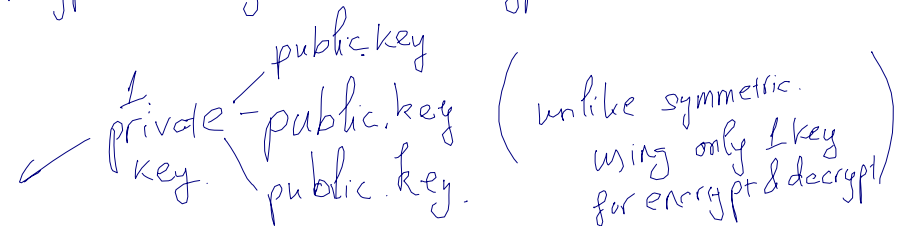 public key
1
private
key.
public.key
public.key.
(unlike symmetric.
using only 1 key
for encrypt & decrypt)